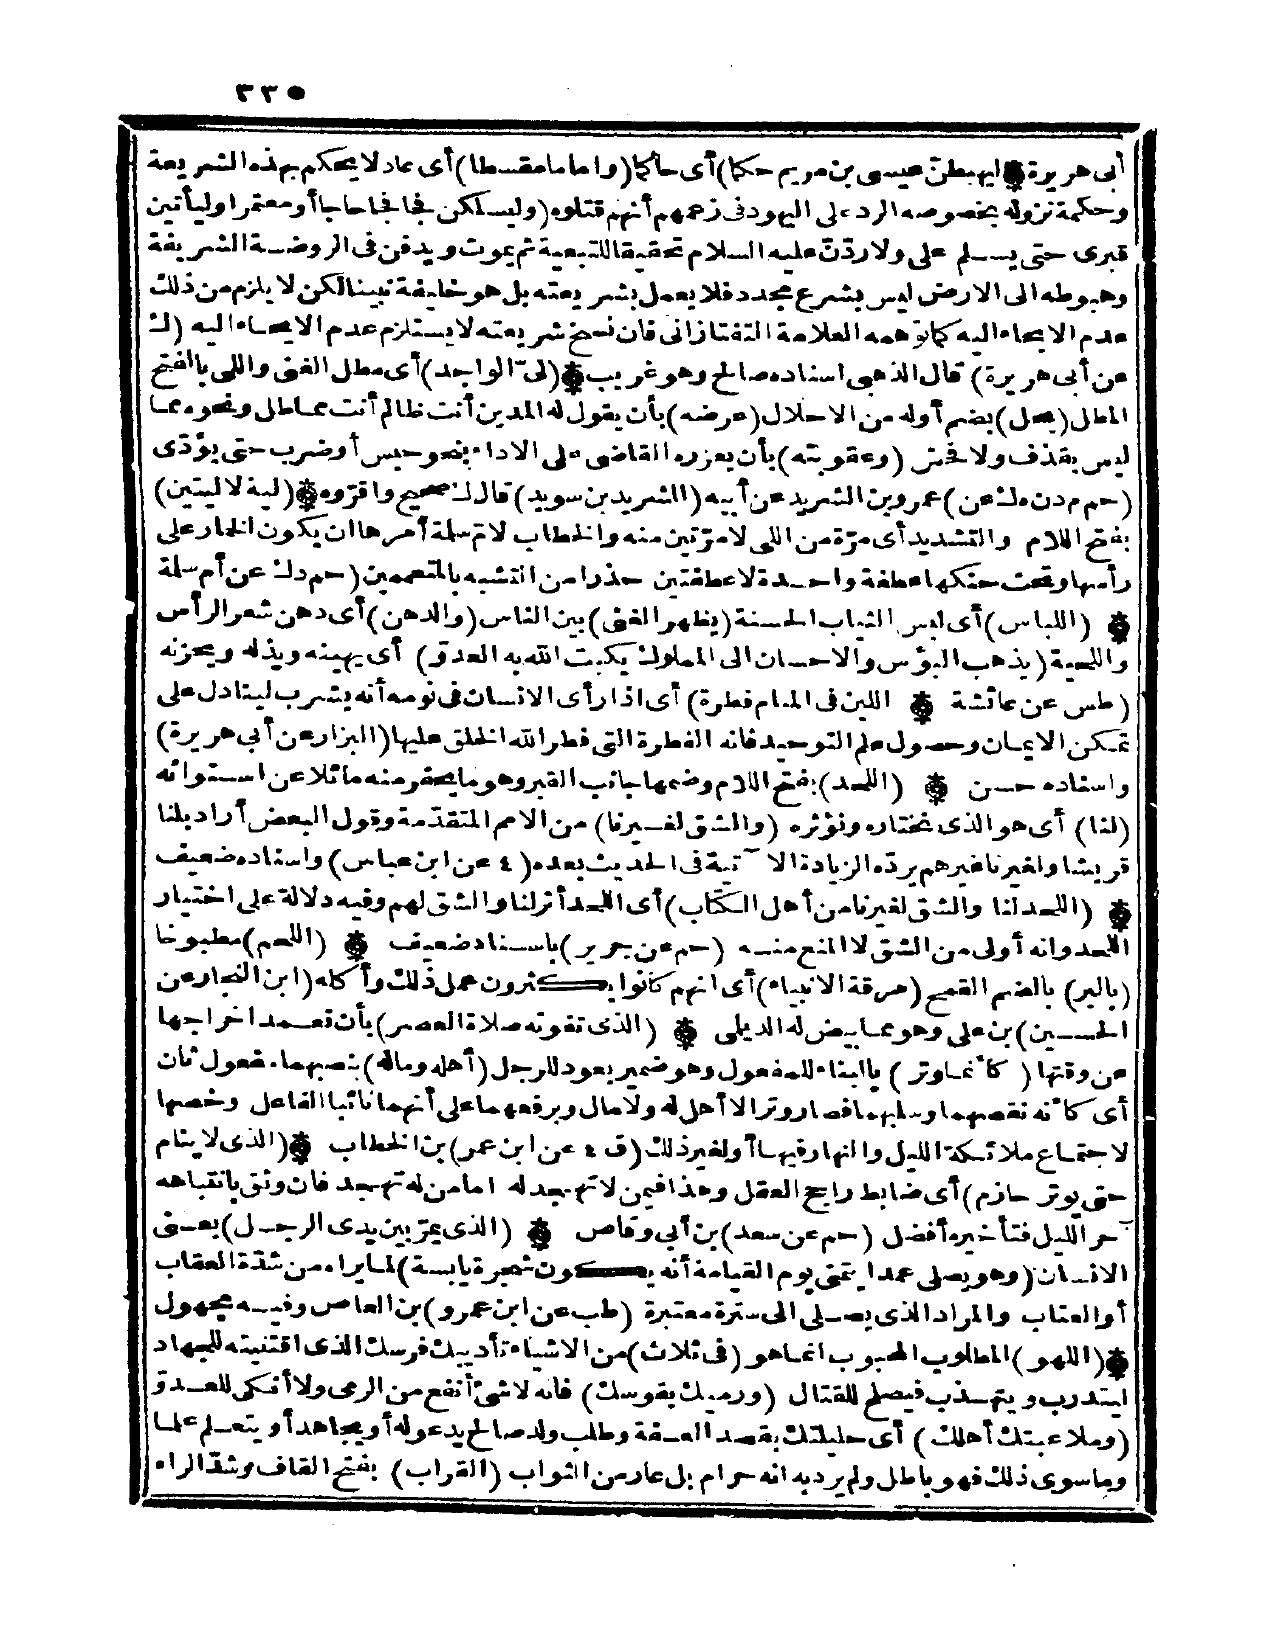 ٣٣٥
أبى هريرة ۞ ليهبطنّ عيسى بن مريم حكما) أى حاكما (واماما مقسطا) أى عادلا يحكم بهذه الشريعة
وحكمة نزوله بخصوصه الرد على اليهود فى زعمهم أنهم قتلوه (وليسلكن فجا فجا حاجا أو معتمرا وليأتين
قبرى حتى يسلم على ولاردّنّ عليه السلام تحقيقا للتبعية ثم يموت ويدفن فى الروضة الشريفة
وهبوطه الى الارض ليس بشرع مجدد فلا يعمل بشريعته بل هو خليفة نبينا لكن لا يلزم من ذلك
عدم الايحاء اليه كما توهمه العلامة التفتازانى فان نسخ شريعته لا يستلزم عدم الايحاء اليه (ك
عن أبى هريرة) قال الذهبى اسناده صالح وهو غريب ۞ (لىّ الواجد) أى مطل الغنى واللى بالفتح
المطل (يحل) بضم أوله من الاحلال (عرضه) بأن يقول له المدين أنت ظالم أنت مماطل ونحوه مما
ليس بقذف ولا فحش (وعقوبته) بأن يعزره القاضى على الاداء بنحو حبس أو ضرب حتى يؤدّى
(حم م د ن ه ك عن) عمرو بن الشريد عن أبيه (الشريد بن سويد) قال ك صحيح واقرّوه ۞ (لية لا ليتين)
بفتح اللام والتشديد أى مرّة من اللى لا مرّتين منه والخطاب لامّ سلة أمرها ان يكون الخمار على
رأسها وتحت حنكها عطفة واحدة لا عطفتين حذرا من التشبه بالمتعممين (حم د ك عن أم سلة
۞ (اللباس) أى لبس الثياب الحسنة (يظهر الغنى) بين الناس (والدهن) أى دهن شعر الرأس
واللحية (يذهب البؤس والاحسان الى المملوك يكبت الله به العدوّ) أى يهينه ويذله ويحزنه
(طس عن عائشة ۞ اللبن فى المنام فطرة) أى اذا رأى الانسان فى نومه أنه يشرب لبنا دل على
تمكن الايمان وحصول علم التوحيد فانه الفطرة التى فطر الله الخلق عليها (البزار عن أبى هريرة)
واسناده حسن ۞ (اللحد) بفتح اللام وضمها جانب القبر وهو ما يحفر منه مائلا عن استوائه
(لنا) أى هو الذى نختاره ونؤثره (والشق لغيرنا) من الامم المتقدّمة وقول البعض أراد بلنا
قريشا ولغيرنا غيرهم يردّه الزيادة الآتية فى الحديث بعده (٤ عن ابن عباس) واسناده ضعيف
۞ (اللحد لنا والشق لغيرنا من أهل الكتاب) أى اللحد أثر لنا والشق لهم وفيه دلالة على اختيار
اللحد وانه أولى من الشق لا المنع منه (حم عن جرير) باسناد ضعيف ۞ (اللحم) مطبوخا
(بالبر) بالضم القمح (مرقة الانبياء) أى انهم كانوا يكثرون عمل ذلك وأكله (ابن النجار عن
الحسين) بن على وهو مما بيض له الديلى ۞ (الذى تفوته صلاة العصر) بأن تعمد اخراجها
عن وقتها (كأنما وتر) بالبناء للمفعول وهو ضمير يعود للرجل (أهله وماله) بنصبهما مفعول ثان
أى كأنه نقصهما وسلبهما فصار وترا لا أهل له ولا مال وبرفعهما على أنهما نائبا الفاعل وخصها
لاجتماع ملائكة الليل والنهار فيها أو لغير ذلك (ق ٤ عن ابن عمر) بن الخطاب ۞ (الذى لا ينام
حتى يوتر حازم) أى ضابط راجح العقل وهذا فيمن لا تهجد له اما من له تهجد فان وثق بانتباهه
آخر الليل فتأخيره أفضل (حم عن سعد) بن أبى وقاص ۞ (الذى يمرّ بين يدى الرجل) يعنى
الانسان (وهو يصلى عمدا يتمنى يوم القيامة أنه يكون شجرة يابسة) لما يراه من شدّة العقاب
أو العتاب والمراد الذى يصلى الى سترة معتبرة (طب عن ابن عمرو) بن العاص وفيه مجهول
۞ (اللهو) المطلوب المحبوب انما هو (فى ثلاث) من الاشياء تأديبك فرسك الذى اقتنيته للجهاد
ليتدرب ويتهذب فيصلح للقتال (ورميك بقوسك) فانه لا شئ أنفع من الرمى ولا أنكى للعدوّ
(وملاعبتك أهلك) أى حليلتك بقصد العفة وطلب ولد صالح يدعو له أو يجاهد أو يتعلم علما
وما سوى ذلك فهو باطل ولم يرد به انه حرام بل عار من الثواب (القراب) بفتح القاف وشدّ الراء